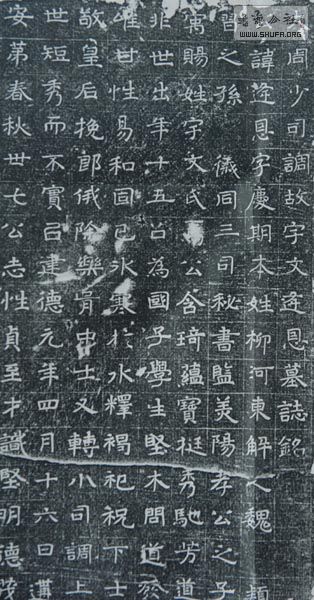 書法公社
WWW.SHUFA.ORG
周少司調故宇文逢恩墓誌銘
諱逢恩字慶期本姓柳河東解人魏 類
之孫儀同三司秘書監美陽孝公之子
寓賜姓宇文氏公含琦蘊寶挺秀馳芳道
非世出年十五㠯為國子學生堅木問道發
唯甘性易和固已冰寒於水釋褐祀祝下士
敬皇后挽郎俄除樂胥中士又轉小司調上
世短秀而不實㠯建德元年四月十六日遘
安第春秋卅七公志性貞至才識堅明德茂